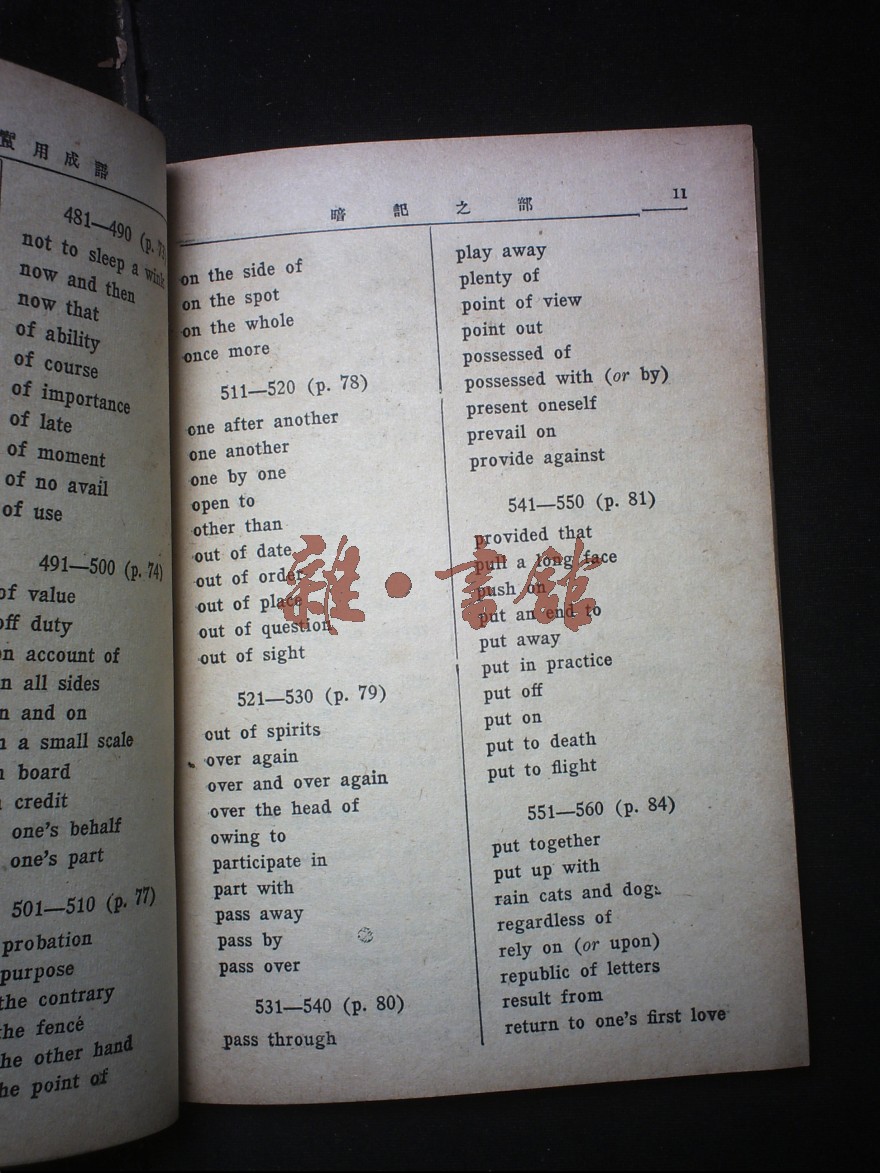 實用成語
481—490 (p.
not to sleep a wink
now and then
now that
of ability
of course
of importance
of late
of moment
of no avail
of use
491—500 (p. 74)
of value
off duty
on account of
on all sides
and on
a small scale
board
credit
one's behalf
one's part
501—510 (p. 77)
probation
purpose
the contrary
the fence
the other hand
the point of
暗記之部
11
on the side of
on the spot
on the whole
once more
511—520 (p. 78)
one after another
one another
one by one
open to
other than
out of date
out of order
out of place
out of question
out of sight
521—530 (p. 79)
out of spirits
over again
over and over again
over the head of
owing to
participate in
part with
pass away
pass by
pass over
531—540 (p. 80)
pass through
play away
plenty of
point of view
point out
possessed of
possessed with (or by)
present oneself
prevail on
provide against
541—550 (p. 81)
provided that
pull a long face
push on
put an end to
put away
put in practice
put off
put on
put to death
put to flight
551—560 (p. 84)
put together
put up with
rain cats and dogs
regardless of
rely on (or upon)
republic of letters
result from
return to one's first love
雜·書館